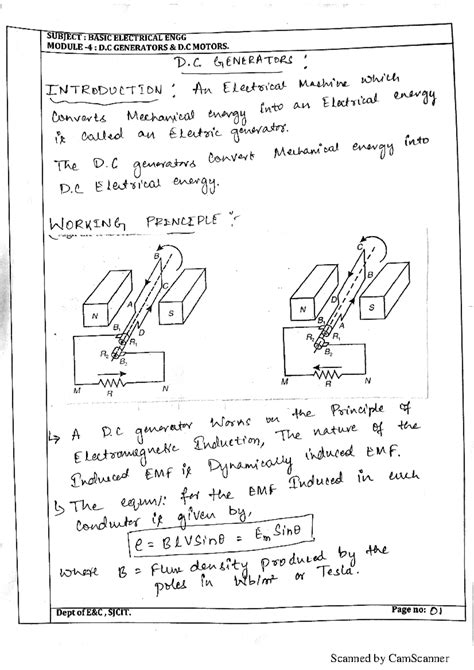 SUBJECT : BASIC ELECTRICAL ENGG
MODULE -4 : D.C GENERATORS & D.C MOTORS.
D.C GENERATORS :
INTRODUCTION : An Electrical Machine which
Converts Mechanical energy into an Electrical energy
is called an Electric generator.
The D.C generators Convert Mechanical energy into
D.C Electrical energy.
WORKING PRINCIPLE :-
B C
B
N A C S N D A S
B1 N D
R2 R1 R2 R1
B2 B2
M R N M R N
↳ A D.C generator Works on the Principle of
Electromagnetic Induction, The nature of the
Induced EMF is Dynamically induced EMF.
↳ The equn/: for the EMF Induced in each
Conductor is given by,
e = BLVSinθ = EmSinθ
where B = Flux density Produced by the
poles in Wb/m² or Tesla.
Dept of E&C, SJCIT.
Page no: 01
Scanned by CamScanner